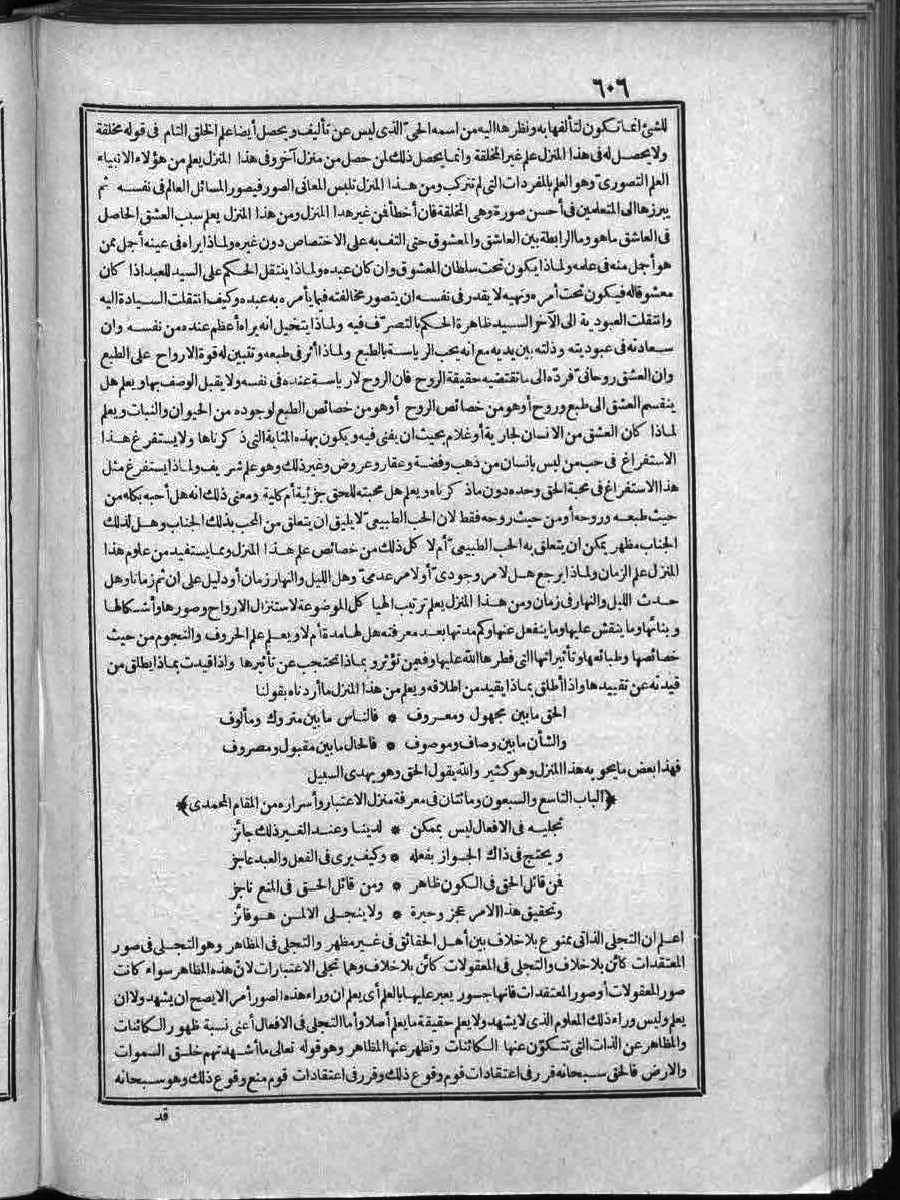 ٦٠٦
للشئ انما تكون لتألفها به ونظرها اليه من اسمه الحىّ الذى ليس عن تأليف ويحصل أيضا علم الخلق التام فى قوله مخلقة
ولا يحصل له فى هذا المنزل علم غير المخلقة وانما يحصل ذلك لمن حصل من منزل آخر وفى هذا المنزل يعلم من هؤلاء الانبياء
العلم التصورى وهو العلم بالمفردات التى لم تتركب ومن هذا المنزل تلبس المعانى الصور فيصور المسائل العالم فى نفسه ثم
يبرزها الى المتعلمين فى أحسن صورة وهى المخلقة فان أخطأ فن غير هذا المنزل ومن هذا المنزل يعلم سبب العشق الحاصل
فى العاشق ما هو وما الرابطة بين العاشق والمعشوق حتى التف به على الاختصاص دون غيره ولماذا يراه فى عينه أجل ممن
هو أجل منه فى علمه ولماذا يكون تحت سلطان المعشوق وان كان عبده ولماذا ينتقل الحكم على السيد للعبد اذا كان
معشوقا له فيكون تحت أمره ونهيه لا يقدر فى نفسه ان يتصور مخالفته فيما يأمره به عبده وكيف انتقلت السيادة اليه
وانتقلت العبودية الى الآخر السيد ظاهرة الحكم بالتصرّف فيه ولماذا يتخيل انه يراه أعظم عنده من نفسه وان
سعادته فى عبوديته وذلته بين يديه مع انه يحب الرياسة بالطبع ولماذا أثر فى طبعه وتتبين له قوة الارواح على الطبع
وان العشق روحانىّ فردّه الى ما تقتضيه حقيقة الروح فان الروح لا رياسة عنده فى نفسه ولا يقبل الوصف بها ويعلم هل
ينقسم العشق الى طبع وروح أو هو من خصائص الروح أو هو من خصائص الطبع لوجوده من الحيوان والنبات ويعلم
لماذا كان العشق من الانسان لجارية أو غلام بحيث ان يفنى فيه ويكون بهذه المثابة التى ذكرناها ولا يستفرغ هذا
الاستفراغ فى حب من ليس بانسان من ذهب وفضة وعقار وعروض وغير ذلك وهو علم شريف ولماذا يستفرغ مثل
هذا الاستفراغ فى محبة الحق وحده دون ماذكرناه ويعلم هل محبته للحق جزئية أم كلية ومعنى ذلك انه هل أحبه بكله من
حيث طبعه وروحه أو من حيث روحه فقط لان الحب الطبيعى لا يليق ان يتعلق من المحب بذلك الجناب وهل لذلك
الجناب مظهر يمكن ان يتعلق به الحب الطبيعىّ أم لا كل ذلك من خصائص علم هذا المنزل ومما يستفيد من علوم هذا
المنزل علم الزمان ولماذا يرجع هل لامر وجودىّ أو لامر عدمىّ وهل الليل والنهار زمان أو دليل على ان ثم زمانا وهل
حدث الليل والنهار فى زمان ومن هذا المنزل يعلم ترتيب الهياكل الموضوعة لاستنزال الارواح وصورها وأشكالها
وبنائها وما ينقش عليها وما ينفعل عنها وكم مدتها بعد معرفته هل لها مدة أم لا ويعلم علم الحروف والنجوم من حيث
خصائصها وطبائعها وتأثيراتها التى فطرها الله عليها وفيمن تؤثر و بماذا يحتجب عن تأثيرها واذا قيدت بماذا يطلق من
قيدته عن تقييدها واذا أطلق بماذا يقيد من اطلاقه ويعلم من هذا المنزل ما أردناه بقولنا
الحق ما بين مجهول ومعروف * فالناس ما بين متروك ومألوف
والشأن ما بين وصاف وموصوف * فالحال ما بين مقبول ومصروف
فهذا بعض ما يحويه هذا المنزل وهو كثير والله يقول الحق وهو يهدى السبيل
﴿الباب التاسع والسبعون ومائتان فى معرفة منزل الاعتبار وأسراره من المقام المحمدى﴾
تجليه فى الافعال ليس بممكن * لدينا وعند الغير ذلك جائز
ويحتج فى ذاك الجواز بفعله * وكيف يرى فى الفعل والعبد عاجز
فن قائل الحق فى الكون ظاهر * ومن قائل الحق فى المنع ناجز
وتحقيق هذا الامر عجز وحيرة * ولا ينجلى الا لمن هو فائز
اعلم ان التجلى الذاتى ممنوع بلا خلاف بين أهل الحقائق فى غير مظهر والتجلى فى المظاهر وهو التجلى فى صور
المعتقدات كائن بلا خلاف والتجلى فى المعقولات كائن بلا خلاف وهما تجلى الاعتبارات لانّ هذه المظاهر سواء كانت
صور المعقولات أو صور المعتقدات فانها جسور يعبر عليها بالعلم أى يعلم ان وراء هذه الصور أمرا لا يصح ان يشهد ولا ان
يعلم وليس وراء ذلك المعلوم الذى لا يشهد ولا يعلم حقيقة ما يعلم أصلا وأما التجلى فى الافعال أعنى نسبة ظهور الكائنات
والمظاهر عن الذات التى تتكوّن عنها الكائنات وتظهر عنها المظاهر وهو قوله تعالى ما أشهدتهم خلق السموات
والارض فالحق سبحانه قرر فى اعتقادات قوم وقوع ذلك وقرر فى اعتقادات قوم منع وقوع ذلك وهو سبحانه
قد